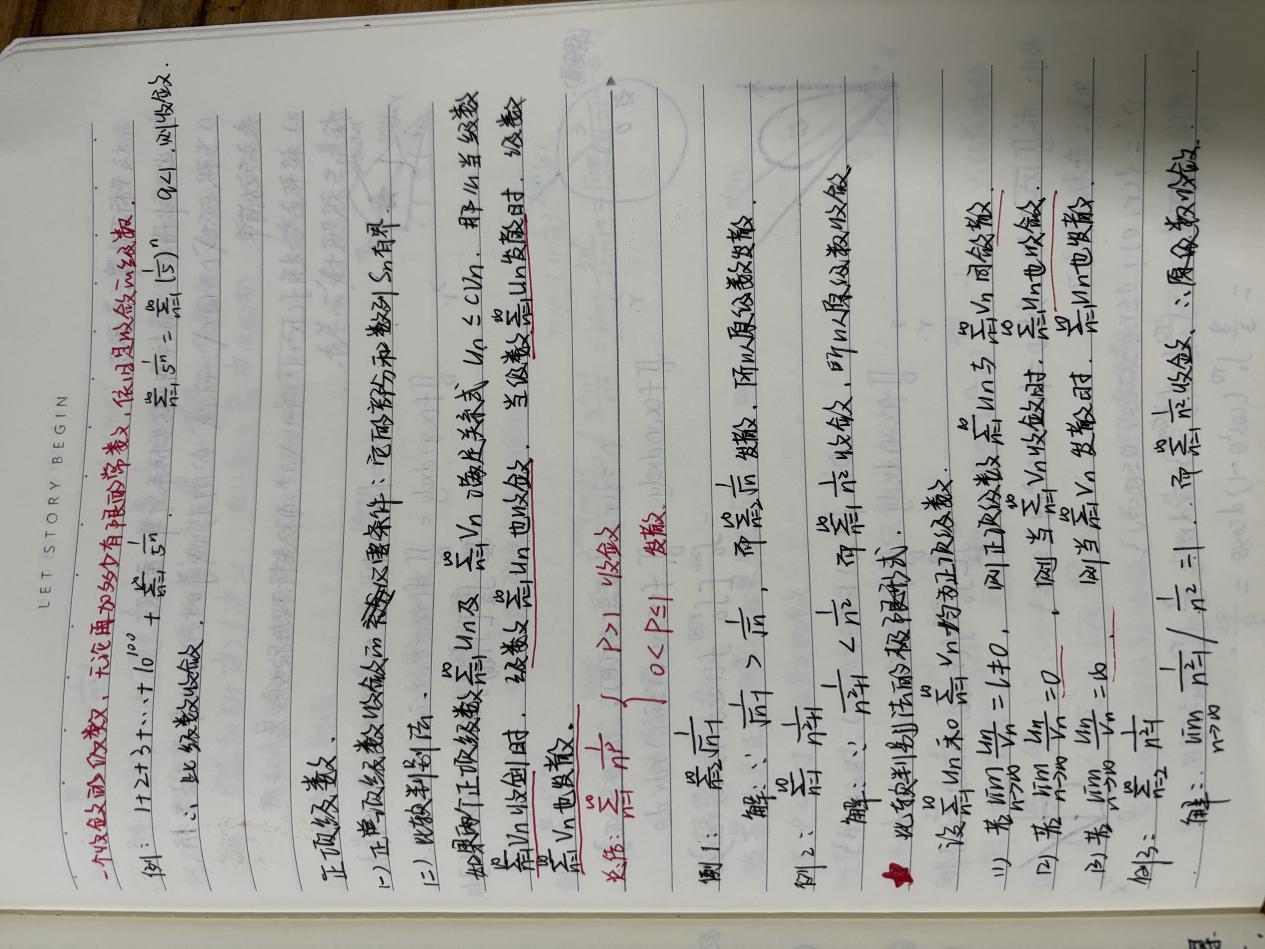 LET STORY BEGIN
一个收敛的级数，无论再加多少有限的常数，依旧是收敛的级数.
例：1+2+3+…+10^100 + ∑_{n=1}^{∞} 1/5^n    ∑_{n=1}^{∞} 1/5^n = ∑_{n=1}^{∞} (1/5)^n    q<1 则收敛.
∴ 此级数收敛
正项级数.
(一) 正项级数收敛的充要条件：它的部分和数列 Sn 有界
(二) 比较判别法.
如果两个正项级数 ∑_{n=1}^{∞} Un 及 ∑_{n=1}^{∞} Vn 满足关系式 Un ≤ CVn. 那么当级数
∑_{n=1}^{∞} Vn 收敛时. 级数 ∑_{n=1}^{∞} Un 也收敛. 当级数 ∑_{n=1}^{∞} Un 发散时. 级数
∑_{n=1}^{∞} Vn 也发散.
∑_{n=1}^{∞} 1/n^p { P>1 收敛
0<P≤1 发散
例1：∑_{n=2}^{∞} 1/√n-1
解：∵ 1/√n-1 > 1/√n, 而 ∑_{n=2}^{∞} 1/√n 发散, 所以原级数发散.
例2：∑_{n=1}^{∞} 1/n²+1
解：∵ 1/n²+1 < 1/n² 而 ∑_{n=1}^{∞} 1/n² 收敛, 所以原级数收敛
★ 比较判别法的极限形式.
设 ∑_{n=1}^{∞} Un 和 ∑_{n=1}^{∞} Vn 均为正项级数.
(1) 若 lim_{n→∞} Un/Vn = l≠0, 则正项级数 ∑_{n=1}^{∞} Un 与 ∑_{n=1}^{∞} Vn 同敛散.
(2) 若 lim_{n→∞} Un/Vn = 0, 则当 ∑_{n=1}^{∞} Vn 收敛时. ∑_{n=1}^{∞} Un 也收敛.
(3) 若 lim_{n→∞} Un/Vn = ∞, 则当 ∑_{n=1}^{∞} Vn 发散时 ∑_{n=1}^{∞} Un 也发散.
例3：∑_{n=2}^{∞} 1/n²-1
解：lim_{n→∞} 1/n²-1 / 1/n² = 1. 而 ∑_{n=1}^{∞} 1/n² 收敛, ∴ 原级数收敛.